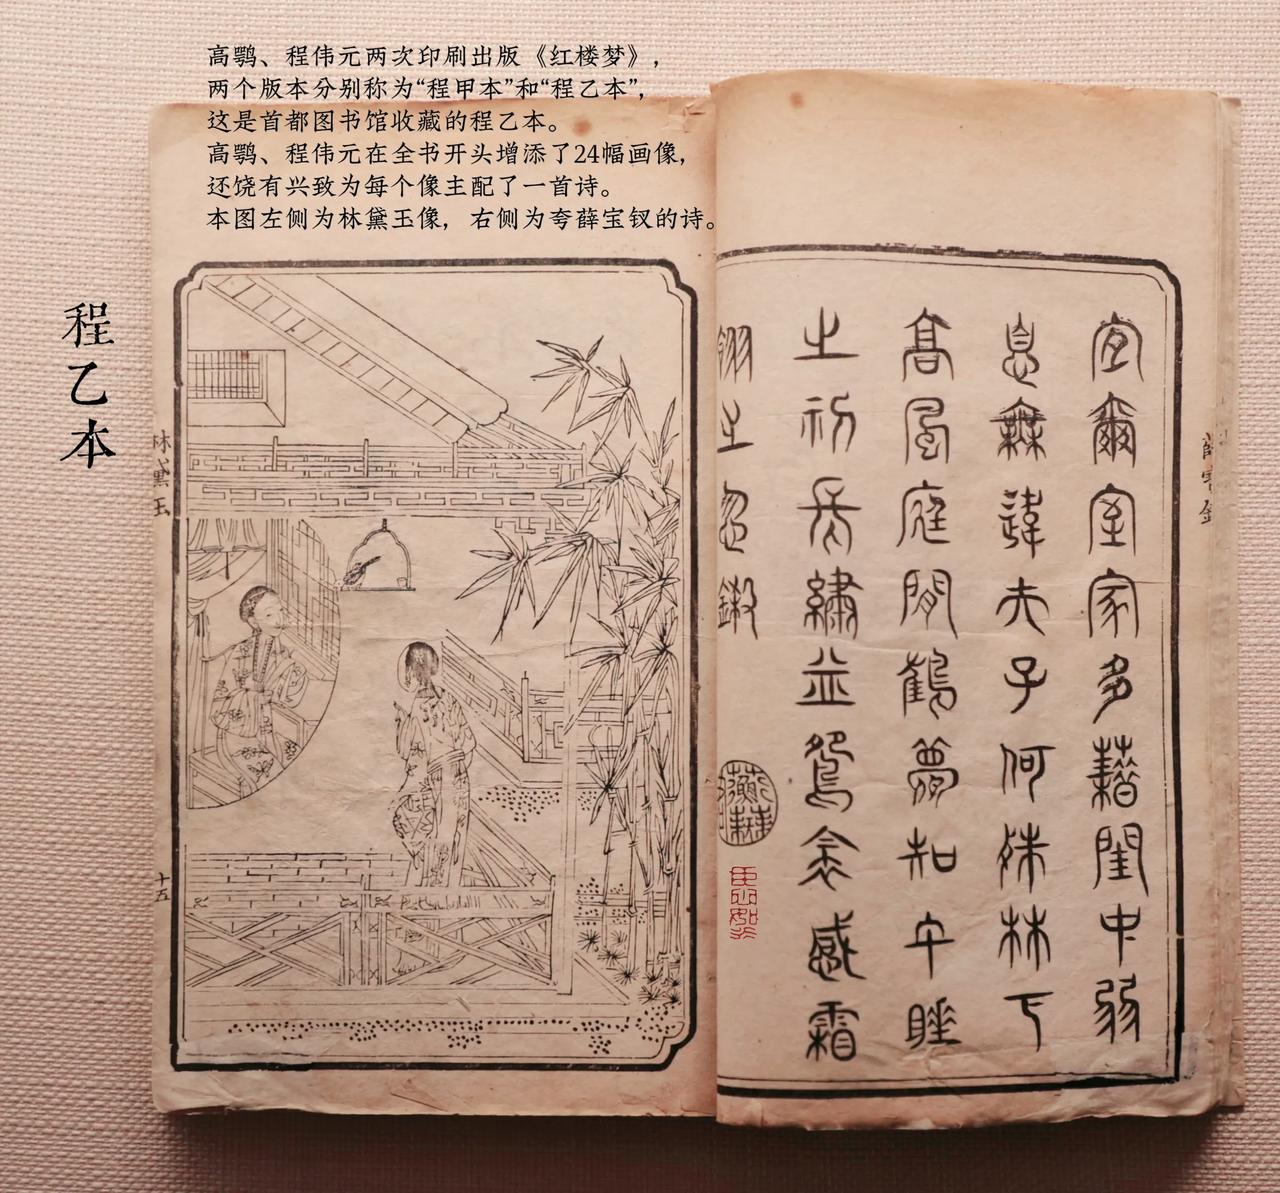 高鹗、程伟元两次印刷出版《红楼梦》，
两个版本分别称为“程甲本”和“程乙本”，
这是首都图书馆收藏的程乙本。
高鹗、程伟元在全书开头增添了24幅画像，
还饶有兴致为每个像主配了一首诗。
本图左侧为林黛玉像，右侧为夸薛宝钗的诗。
程乙本
薛寶釵
宜爾室家多藉閨中弱
息無違夫子何殊林下
高風庭閒鶴夢知午睡
之初長繡並鴛衾感霜
翎之忽鎩
林黛玉
十五